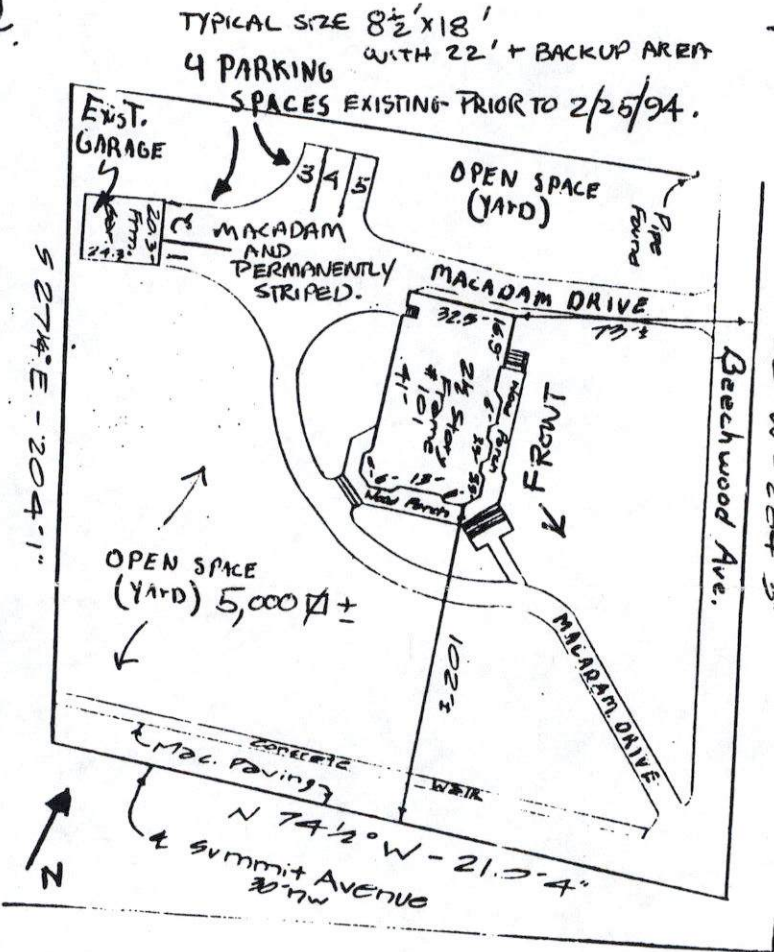 TYPICAL SIZE 8½'x18'
WITH 22' + BACKUP AREA
4 PARKING
SPACES EXISTING PRIOR TO 2/25/94.
EXIST.
GARAGE
3
4
5
OPEN SPACE
(YARD)
Pipe
Found
20.3-
Frm.
24.3
2
1
MACADAM
AND
PERMANENTLY
STRIPED.
MACADAM DRIVE
73'±
32.5-
16.9-
2½ Story
Frame
# 101
41-
Wood Porch
FRONT
6-
Wood Porch
-6-
13-
Beechwood Ave.
S 27¼°E - 204'1"
OPEN SPACE
(YARD) 5,000 ±
102'±
MACADAM DRIVE
CONCRETE
WEIR
Mac. Paving
N 74½°W - 21
4"
Summit Avenue
30'
N